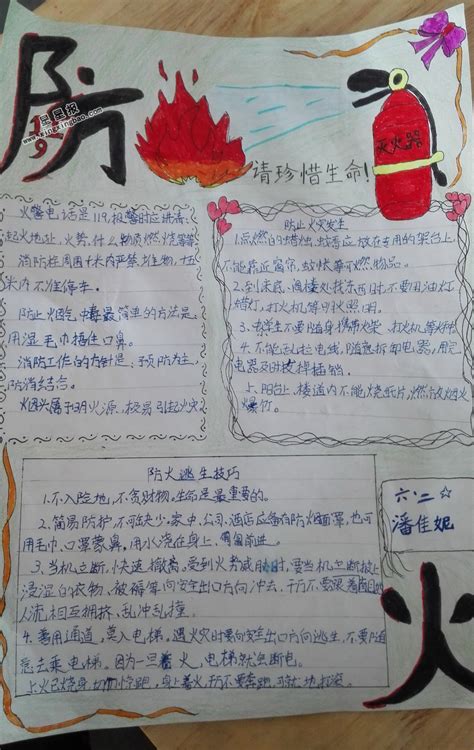 防
119
星星报
www.xingxingbao.com
灭火器
请珍惜生命!
火警电话是119,报警时应讲清
起火地址,火势,什么物质燃烧等等
消防栓周围十米内严禁堆物,
米内不准停车。
防止烟气中毒最简单的方法是
用湿毛巾捂住口鼻。
消防工作的方针是:预防为主,
防消结合。
烟头属于明火源,极易引起火灾
防止火灾发生
1.点燃的蜡烛,蚊香应放在专用的架台上
不能靠近窗帘,蚊帐等可燃物品。
2.到床底、阁楼处找东西时不要用油灯
蜡灯,打火机等明火照明。
3.学生不要随身携带火柴、打火机等火种
4.不能乱拉电线,随意拆卸电器,用完
电器及时拔掉插销。
5.阳台上、楼道内不能烧纸片,燃放烟火
爆竹。
防火逃生技巧
1.不入险地,不贪财物,生命是最重要的。
2.简易防护,不可缺少。家中、公司、酒店应备有防烟面罩,也可
用毛巾、口罩蒙鼻,用水浇在身上,匍匐前进。
3.当机立断,快速撤离,受到火势威胁时,要当机立断披上
浸湿的衣物、被褥等向安全出口方向冲去,千万不要
人流相互拥挤,乱冲乱撞。
4.善用通道,莫入电梯,遇火灾时要向安全出口方向逃生,不要随
意去乘电梯。因为一旦着火,电梯就会断电。
火已烧身,切勿惊跑,身上着火,千万不要奔跑,可就地打滚。
六.二
潘佳妮
火